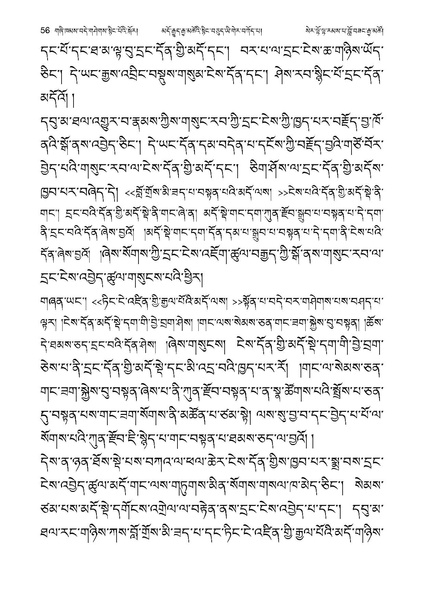 56 གཞི་ཁམས་བདེ་གཤེགས་སྙིང་པོའི་སྐོར། མདོ་རྒྱུད་རྒྱ་མཚོའི་སྙིང་བཅུད་ཡི་གེར་བཀོད་པ། སེར་ལྷོ་བླ་རམས་པ་བློ་བཟང་རྒྱ་མཚོ།
དང་པོ་དང་ཐ་མ་ལྟ་བུ་དྲང་དོན་གྱི་མདོ་དང་། བར་པ་ལ་དྲང་ངེས་ཆ་གཉིས་ཡོད་
ཅིང་། དེ་ཡང་རྒྱས་འབྲིང་བསྡུས་གསུམ་ངེས་དོན་དང་། ཤེས་རབ་སྙིང་པོ་དྲང་དོན་
མདོའོ། །
དབུ་མ་ཐལ་འགྱུར་བ་རྣམས་ཀྱིས་གསུང་རབ་ཀྱི་དྲང་ངེས་ཀྱི་ཁྱད་པར་བརྗོད་བྱ་ཁོ་
ནའི་སྒོ་ནས་འབྱེད་ཅིང་། དེ་ཡང་དོན་དམ་བདེན་པ་དངོས་ཀྱི་བརྗོད་བྱའི་གཙོ་བོར་
བྱེད་པའི་གསུང་རབ་ལ་ངེས་དོན་གྱི་མདོ་དང་། ཅིག་ཤོས་ལ་དྲང་དོན་གྱི་མདོས་
ཁྱབ་པར་བཞེད་དེ། <<བློ་གྲོས་མི་ཟད་པ་བསྟན་པའི་མདོ་ལས། >>ངེས་པའི་དོན་གྱི་མདོ་སྡེ་ནི་
གང་། དྲང་བའི་དོན་གྱི་མདོ་སྡེ་ནི་གང་ཞེ་ན། མདོ་སྡེ་གང་དག་ཀུན་རྫོབ་སྒྲུབ་པ་བསྟན་པ་དེ་དག་
ནི་དྲང་བའི་དོན་ཞེས་བྱའོ། །མདོ་སྡེ་གང་དག་དོན་དམ་པ་སྒྲུབ་པ་བསྟན་པ་དེ་དག་ནི་ངེས་པའི་
དོན་ཞེས་བྱའོ། །ཞེས་སོགས་ཀྱི་དྲང་ངེས་འཇོག་ཚུལ་བརྒྱད་ཀྱི་སྒོ་ནས་གསུང་རབ་ལ་
དྲང་ངེས་འབྱེད་ཚུལ་གསུངས་པའི་ཕྱིར།
གཞན་ཡང་། <<ཏིང་ངེ་འཛིན་གྱི་རྒྱལ་པོའི་མདོ་ལས། >>སྟོན་པ་བདེ་བར་གཤེགས་པས་བཤད་པ་
ལྟར། །ངེས་དོན་མདོ་སྡེ་དག་གི་བྱེ་བྲག་ཤེས། །གང་ལས་སེམས་ཅན་གང་ཟག་སྐྱེས་བུ་བསྟན། །ཆོས་
དེ་ཐམས་ཅད་དྲང་བའི་དོན་ཤེས། །ཞེས་གསུངས། ངེས་དོན་གྱི་མདོ་སྡེ་དག་གི་བྱེ་བྲག་
ཅེས་པ་ནི་དྲང་དོན་གྱི་མདོ་སྡེ་དང་མི་འདྲ་བའི་ཁྱད་པར་རོ། །གང་ལ་སེམས་ཅན་
གང་ཟག་སྐྱེས་བུ་བསྟན་ཞེས་པ་ནི་ཀུན་རྫོབ་བསྟན་པ་ན་སྣ་ཚོགས་པའི་སྤྲོས་པ་ཅན་
དུ་བསྟན་པས་གང་ཟག་སོགས་ནི་མཚོན་པ་ཙམ་སྟེ། ལས་སུ་བྱ་བ་དང་བྱེད་པ་པོ་ལ་
སོགས་པའི་ཀུན་རྫོབ་ཇི་སྙེད་པ་གང་བསྟན་པ་ཐམས་ཅད་ལ་བྱའོ། །
དེས་ན་ཉན་ཐོས་སྡེ་པས་བཀའ་ལ་ཕལ་ཆེར་ངེས་དོན་གྱིས་ཁྱབ་པར་སྨྲ་བས་དྲང་
ངེས་འབྱེད་ཚུལ་མདོ་གང་ལས་གཏུགས་མིན་སོགས་གསལ་ཁ་མེད་ཅིང་། སེམས་
ཙམ་པས་མདོ་སྡེ་དགོངས་འགྲེལ་ལ་བརྟེན་ནས་དྲང་ངེས་འབྱེད་པ་དང་། དབུ་མ་
ཐལ་རང་གཉིས་ཀས་བློ་གྲོས་མི་ཟད་པ་དང་ཏིང་ངེ་འཛིན་གྱི་རྒྱལ་པོའི་མདོ་གཉིས་